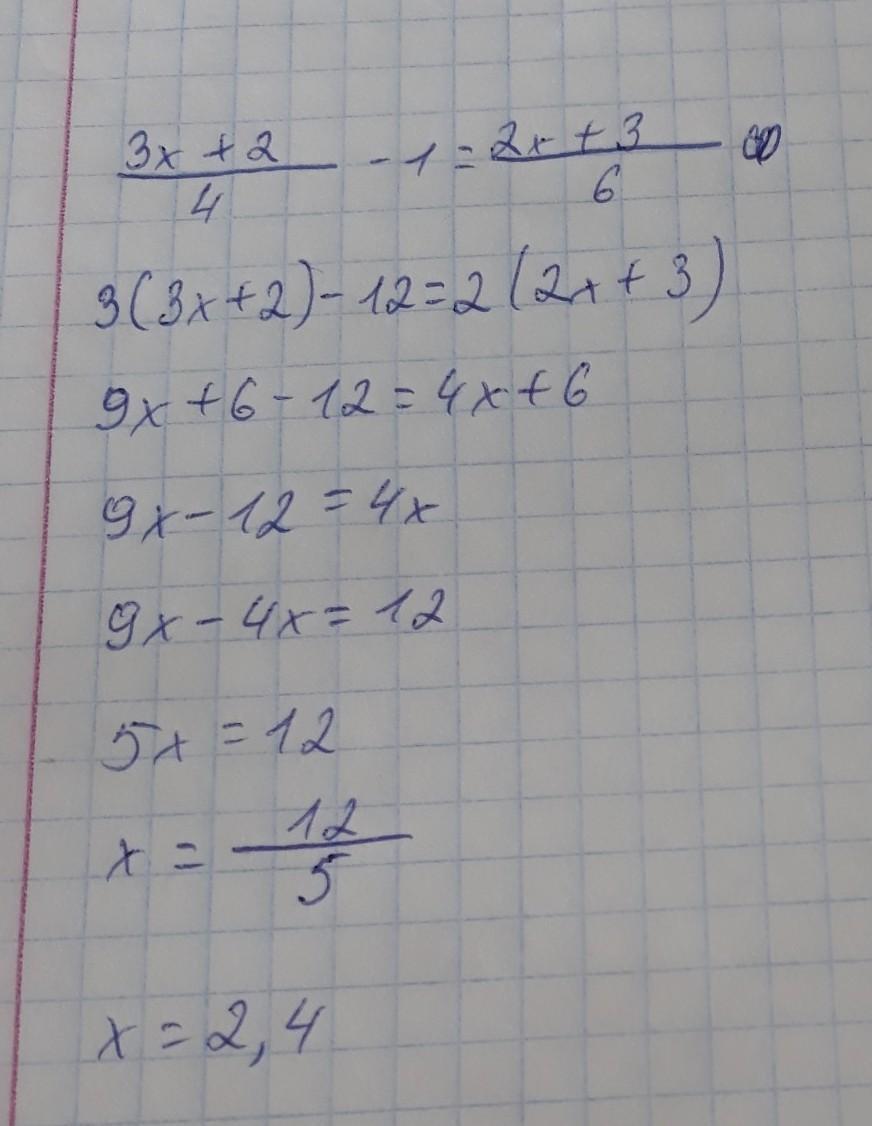 (3x + 2)/4 - 1 = (2x + 3)/6
3(3x+2) - 12 = 2(2x + 3)
9x + 6 - 12 = 4x + 6
9x - 12 = 4x
9x - 4x = 12
5x = 12
x = 12/5
x = 2,4